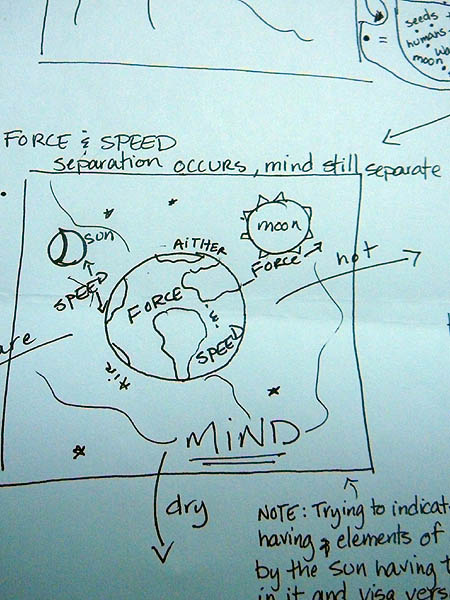 seeds
humans
wa
moon
• =
FORCE & SPEED
separation occurs, mind still separate
sun
moon
AiTHER
FORCE
hot
SPEED
FORCE
&
SPEED
are
Air
MiND
dry
NOTE: Trying to indicat
having elements of
by the sun having t
in it and visa vers